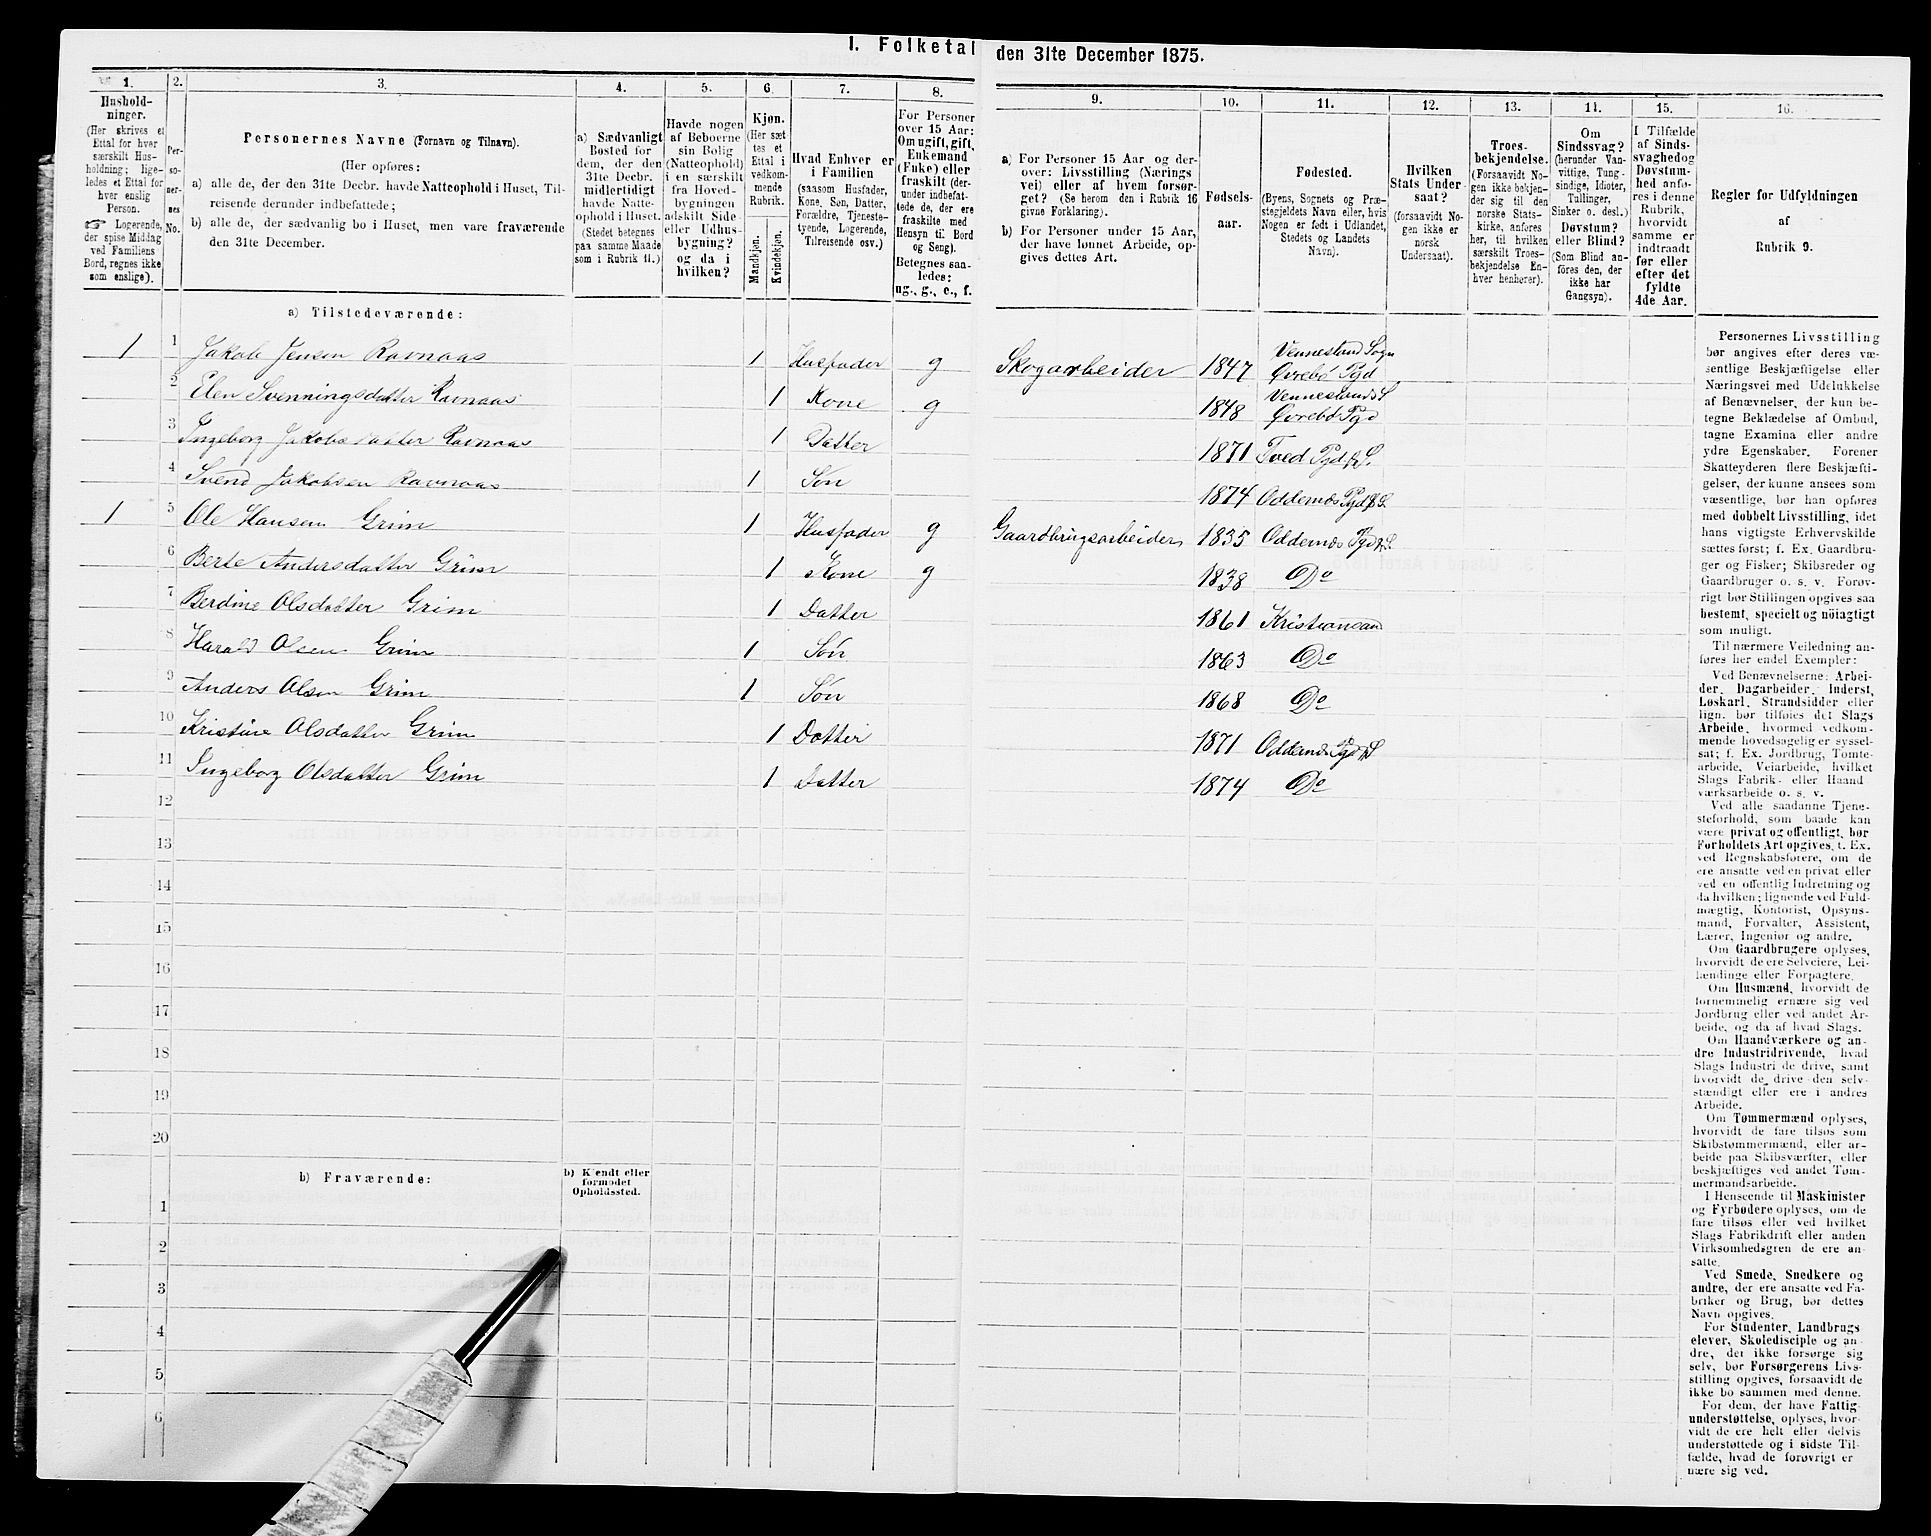 1. Folketal den 31te December 1875.
1.
Hushold-
ninger.
(Her skrives et
Ettal for hver
særskilt Hus-
holdning; lige-
ledes et Ettal for
hver enslig
Person.
☞ Logerende,
der spise Middag
ved Familiens
Bord, regnes ikke
som enslige).
2.
Per-
so-
ner-
nes
No.
3.
Personernes Navne (Fornavn og Tilnavn).
(Her opføres:
a) alle de, der den 31te Decbr. havde Natteophold i Huset, Til-
reisende derunder indbefattede;
b) alle de, der sædvanlig bo i Huset, men vare fraværende
den 31te December.
4.
a) Sædvanligt
Bosted for
dem, der den
31te Decbr.
midlertidigt
havde Natte-
ophold i Huset.
(Stedet betegnes
paa samme Maade
som i Rubrik 11.)
5.
Havde nogen
af Beboerne
sin Bolig
(Natteophold)
i en særskilt
fra Hoved-
bygningen
adskilt Side-
eller Udhus-
bygning?
og da i
hvilken?
6.
Kjøn.
(Her sæt-
tes et
Ettal i
vedkom-
mende
Rubrik.
Mandkjøn.
Kvindekjøn.
7.
Hvad Enhver er
i Familien
(saasom Husfader,
Kone, Søn, Datter,
Forældre, Tjeneste-
tyende, Logerende,
Tilreisende osv.)
8.
For Personer
over 15 Aar:
Om ugift, gift,
Enkemand
(Enke) eller
fraskilt (der-
under indbefat-
tede de, der ere
fraskilte med
Hensyn til Bord
og Seng).
Betegnes saa-
ledes:
ug., g., e., f.
9.
a) For Personer 15 Aar og der-
over: Livsstilling (Nærings
vei) eller af hvem forsør-
get? (Se herom den i Rubrik 16
givne Forklaring).
b) For Personer under 15 Aar,
der have lønnet Arbeide, op-
gives dettes Art.
10.
Fødsels-
aar.
11.
Fødested.
(Byens, Sognets og Præ-
stegjeldets Navn eller, hvis
Nogen er født i Udlandet,
Stedets og Landets
Navn).
12.
Hvilken
Stats Under-
saat?
(forsaavidt No-
gen ikke er
norsk
Undersaat).
13.
Troes-
bekjendelse.
(Forsaavidt No-
gen ikke bekjen-
der sig til den
norske Stats-
kirke, anføres
her, til hvilken
særskilt Troes-
bekjendelse En-
hver henhører).
14.
Om
Sindssvag?
(herunder Van-
vittige, Tung-
sindige, Idioter,
Tullinger,
Sinker o. desl.)
Døvstum?
eller Blind?
(Som Blind an-
føres den, der
ikke har
Gangsyn).
15.
I Tilfælde
af Sinds-
svaghed og
Døvstum-
hed anfø-
res i denne
Rubrik,
hvorvidt
samme er
indtraadt
før eller
efter det
fyldte
4de Aar.
16.
Regler for Udfyldningen
af
Rubrik 9.
a) Tilstedeværende:
1 1 Jakob Jensen Ravnaas 1 Husfader g Skogarbeider 1847 Venneslands Sogn Øvrebø Pgd
2 Elen Svenningsdatter Ravnaas 1 Kone g 1848 Venneslands S Øvrebø Pgd
3 Ingeborg Jakobsdatter Ravnaas 1 Datter 1871 Tved Pgd & S.
4 Svend Jakobsen Ravnaas 1 Søn 1874 Oddernæs Pgd & S.
1 5 Ole Hansen Grim 1 Husfader g Gaardbrugsarbeider 1835 Oddernæs Pgd & S.
6 Berte Andersdatter Grim 1 Kone g 1838 Do
7 Berdine Olsdatter Grim 1 Datter 1861 Kristiansand
8 Harald Olsen Grim 1 Søn 1863 Do
9 Anders Olsen Grim 1 Søn 1868 Do
10 Kristine Olsdatter Grim 1 Datter 1871 Oddernæs Pgd & S
11 Ingeborg Olsdatter Grim 1 Datter 1874 Do
12
13
14
15
16
17
18
19
20
b) Fraværende:
b) Kjendt eller
formodet
Opholdssted.
1
2
3
4
5
6
Personernes Livsstilling
bør angives efter deres væ-
sentlige Beskjæftigelse eller
Næringsvei med Udelukkelse
af Benævnelser, der kun be-
tegne Beklædelse af Ombud,
tagne Examina eller andre
ydre Egenskaber. Forener
Skatteyderen flere Beskjæfti-
gelser, der kunne ansees som
væsentlige, bør han opføres
med dobbelt Livsstilling, idet
hans vigtigste Erhvervskilde
sættes først; f. Ex. Gaardbru-
ger og Fisker; Skibsreder og
Gaardbruger o. s. v. Forøv-
rigt bør Stillingen opgives saa
bestemt, specielt og nöiagtigt
som muligt.
Til nærmere Veiledning an-
føres her endel Exempler:
Ved Benævnelserne: Arbei-
der, Dagarbeider, Inderst,
Løskarl, Strandsidder eller
lign. bør tilføies det Slags
Arbeide, hvormed vedkom-
mende hovedsagelig er syssel-
sat; f. Ex. Jordbrug, Tomte-
arbeide, Veiarbeide, hvilket
Slags Fabrik- eller Haand
værksarbeide o. s. v.
Ved alle saadanne Tjene-
steforhold, som baade kan
være privat og offentligt, bør
Forholdets Art opgives, f. Ex.
ved Regnskabsførere, om de
ere ansatte ved en privat eller
ved en offentlig Indretning og
da hvilken; lignende ved Fuld-
mægtig, Kontorist, Opsyns-
mand, Forvalter, Assistent,
Lærer, Ingeniør og andre.
Om Gaardbrugere oplyses,
hvorvidt de ere Selveiere, Lei-
lændinge eller Forpagtere.
Om Husmænd, hvorvidt de
fornemmelig ernære sig ved
Jordbrug eller ved andet Ar-
beide, og da af hvad Slags.
Om Haandværkere og an-
dre Industridrivende, hvad
Slags Industri de drive, samt
hvorvidt de drive den selv-
stændigt eller ere i andres
Arbeide.
Om Tømmermænd oplyses,
hvorvidt de fare tilsøs som
Skibstømmermænd, eller ar-
beide paa Skibsværfter, eller
beskjæftiges ved andet Tøm-
mermandsarbeide.
I Henseende til Maskinister
og Fyrbødere oplyses, om de
fare tilsøs eller ved hvilket
Slags Fabrikdrift eller anden
Virksomhedsgren de ere an-
satte.
Ved Smede, Snedkere og
andre, der ere ansatte ved Fa-
briker og Brug, bør dettes
Navn opgives.
For Studenter, Landbrugs
elever, Skoledisciple og an-
dre, der ikke forsørge sig
selv, bør Forsørgerens Livs-
stilling opgives, forsaavidt de
ikke bo sammen med denne.
For dem, der have Fattig
understøttelse, oplyses, hvor-
vidt de ere helt eller delvis
understøttede og i sidste Til-
fælde, hvad de forøvrigt er
nære sig ved.